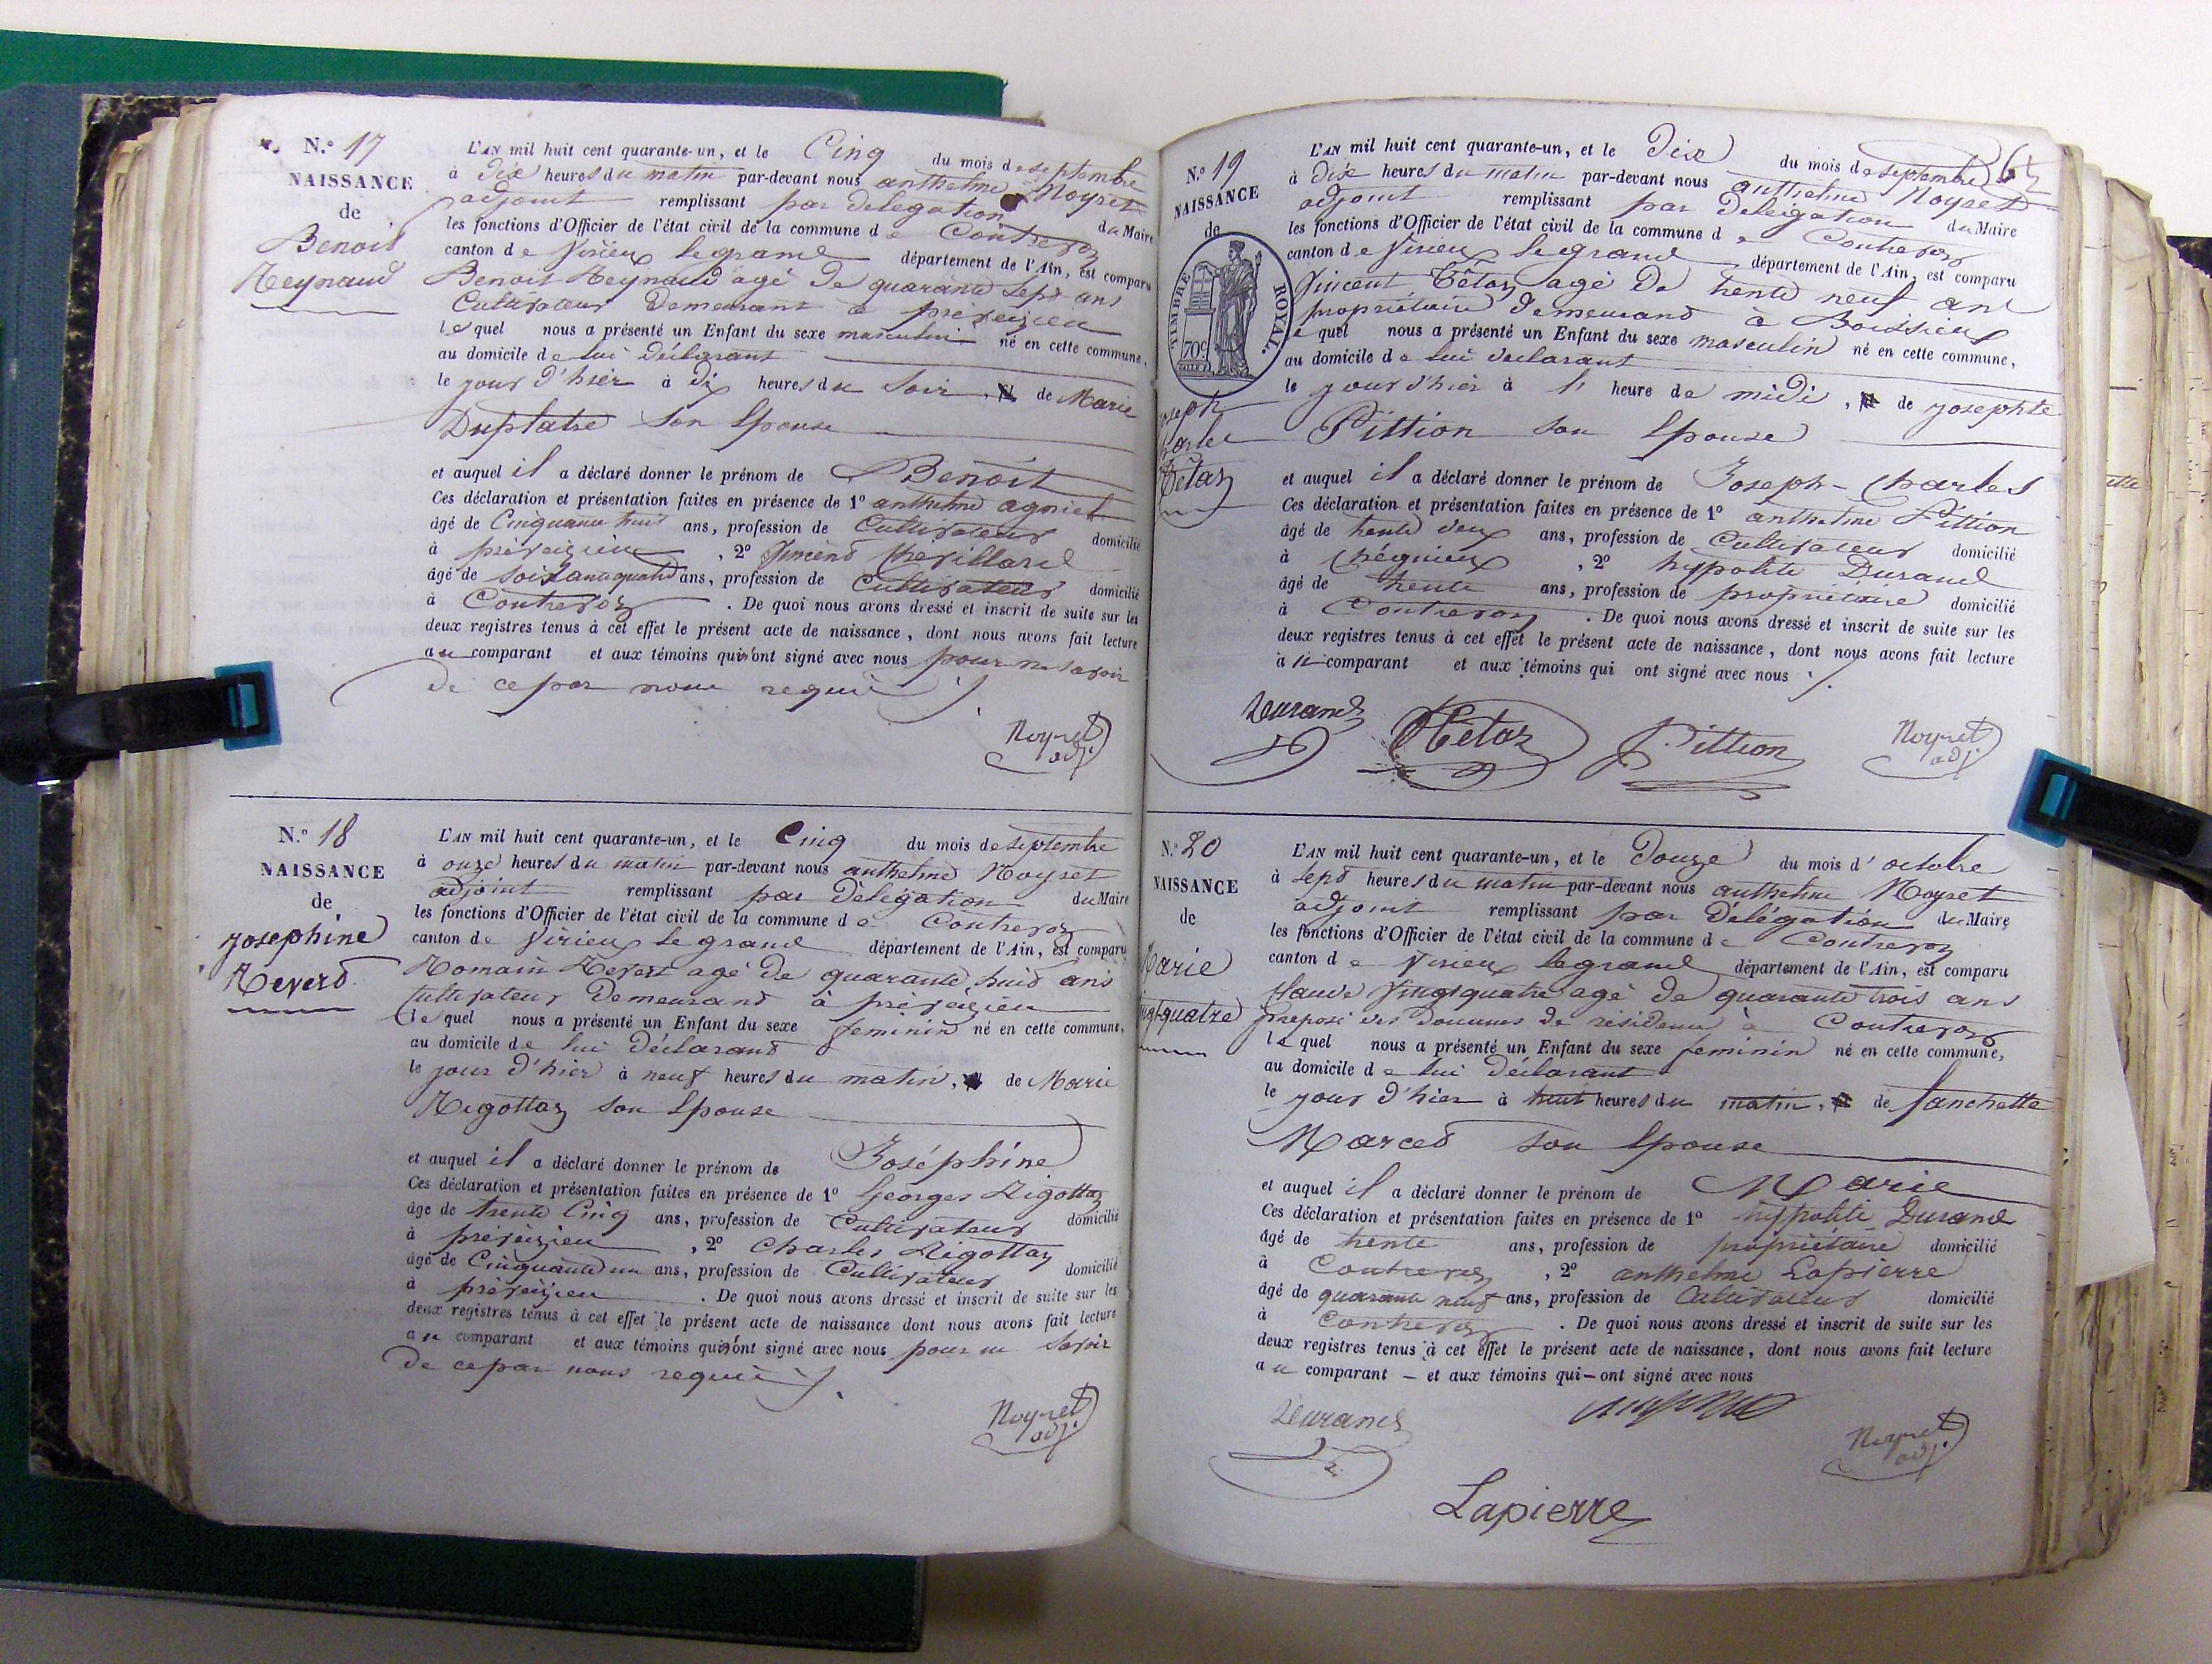 N.° 17
NAISSANCE
de
Benoit
Reynaud
L'AN mil huit cent quarante-un, et le Cinq du mois de septembre
à dix heures du matin par-devant nous anthelme Noyret
adjoint remplissant par délégation du Maire
les fonctions d'Officier de l'état civil de la commune de Contrevoz
canton de Virieu le grand département de l'Ain, est comparu
Benoit Reynaud agé de quarante sept ans
Cultivateur demeurant à préveyzieu
lequel nous a présenté un Enfant du sexe masculin né en cette commune,
au domicile de lui déclarant
le jour d'hier à dix heures du soir, de Marie
Duplatre son Epouse
et auquel il a déclaré donner le prénom de Benoit
Ces déclaration et présentation faites en présence de 1° anthelme agniel
âgé de Cinquante huit ans, profession de Cultivateur domicilié
à préveizieu, 2° Vincend Chevillard
âgé de soixante quatre ans, profession de Cultivateur domicilié
à Contrevoz. De quoi nous avons dressé et inscrit de suite sur les
deux registres tenus à cet effet le présent acte de naissance, dont nous avons fait lecture
au comparant et aux témoins qui n'ont signé avec nous pour ne savoir
de ce par nous requis
Noyret
adj.
N.° 18
NAISSANCE
de
Josephine
Reverd
L'AN mil huit cent quarante-un, et le Cinq du mois de septembre
à onze heures du matin par-devant nous anthelme Noyret
adjoint remplissant par délégation du Maire
les fonctions d'Officier de l'état civil de la commune de Contrevoz
canton de Virieu le grand département de l'Ain, est comparu
Romain Reverd agé de quarante huit ans
Cultivateur demeurand à préveizieu
lequel nous a présenté un Enfant du sexe feminin né en cette commune,
au domicile de lui déclarand
le jour d'hier à neuf heures du matin, de Marie
Rigottaz son Epouse
et auquel il a déclaré donner le prénom de Joséphine
Ces déclaration et présentation faites en présence de 1° Georges Rigottaz
âgé de trente Cinq ans, profession de Cultivateur domicilié
à préveizieu, 2° Charles Rigottaz
âgé de Cinquante un ans, profession de Cultivateur domicilié
à préveizieu. De quoi nous avons dressé et inscrit de suite sur les
deux registres tenus à cet effet le présent acte de naissance dont nous avons fait lecture
au comparant et aux témoins qui n'ont signé avec nous pour ne savoir
de ce par nous requis
Noyret
adj.
N.° 19
NAISSANCE
de
TIMBRE ROYAL.
70c
Joseph
Charles
Tétaz
L'AN mil huit cent quarante-un, et le Dix du mois de septembre
à dix heures du matin par-devant nous anthelme Noyret
adjoint remplissant par délégation du Maire
les fonctions d'Officier de l'état civil de la commune de Contrevoz
canton de Virieu le grand département de l'Ain, est comparu
Vincent Tétaz agé de trente neuf ans
propriétaire demeurand à Boissieu
lequel nous a présenté un Enfant du sexe masculin né en cette commune,
au domicile de lui déclarant
le jour d'hier à l'heure de midi, de josephte
Pittion son Epouse
et auquel il a déclaré donner le prénom de Joseph-Charles
Ces déclaration et présentation faites en présence de 1° anthelme Pittion
âgé de trente deux ans, profession de Cultivateur domicilié
à Chégnieu, 2° hypolite Durand
âgé de trente ans, profession de propriétaire domicilié
à Contrevoz. De quoi nous avons dressé et inscrit de suite sur les
deux registres tenus à cet effet le présent acte de naissance, dont nous avons fait lecture
au comparant et aux témoins qui ont signé avec nous
Durand Tétaz Pittion Noyret
adj.
N.° 20
NAISSANCE
de
Marie
Vingt-quatre
L'AN mil huit cent quarante-un, et le Douze du mois d'octobre
à sept heures du matin par-devant nous anthelme Noyret
adjoint remplissant par délégation du Maire
les fonctions d'Officier de l'état civil de la commune de Contrevoz
canton de Virieu le grand département de l'Ain, est comparu
Claude Vingtquatre agé de quarante trois ans
préposé des Douanes de résidence à Contrevoz
lequel nous a présenté un Enfant du sexe feminin né en cette commune,
au domicile de lui déclarant
le jour d'hier à huit heures du matin, de fanchette
Marced son Epouse
et auquel il a déclaré donner le prénom de Marie
Ces déclaration et présentation faites en présence de 1° hyppolite Durand
âgé de trente ans, profession de propriétaire domicilié
à Contrevoz, 2° anthelme Lapierre
âgé de quarante neuf ans, profession de Cultivateur domicilié
à Contrevoz. De quoi nous avons dressé et inscrit de suite sur les
deux registres tenus à cet effet le présent acte de naissance, dont nous avons fait lecture
au comparant – et aux témoins qui – ont signé avec nous
Durand Noyret
adj.
Lapierre